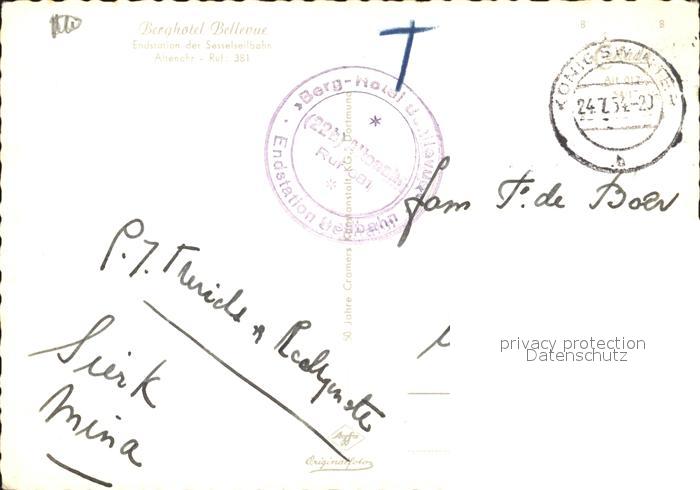 Berghotel Bellevue
Endstation der Sesselseilbahn
Altenahr - Ruf: 381
T
Berg-Hotel Bellevue
(22b) Altenahr
Ruf 381
Endstation Seilbahn
KÖNIGSWINTER
24.7.54.-20
b
50 Jahre Cramers Kunstanstalt KG., Dortmund
fam F. de Boer
P.J.
Sierk
Mina
privacy protection
Datenschutz
Agfa
Originalfoto